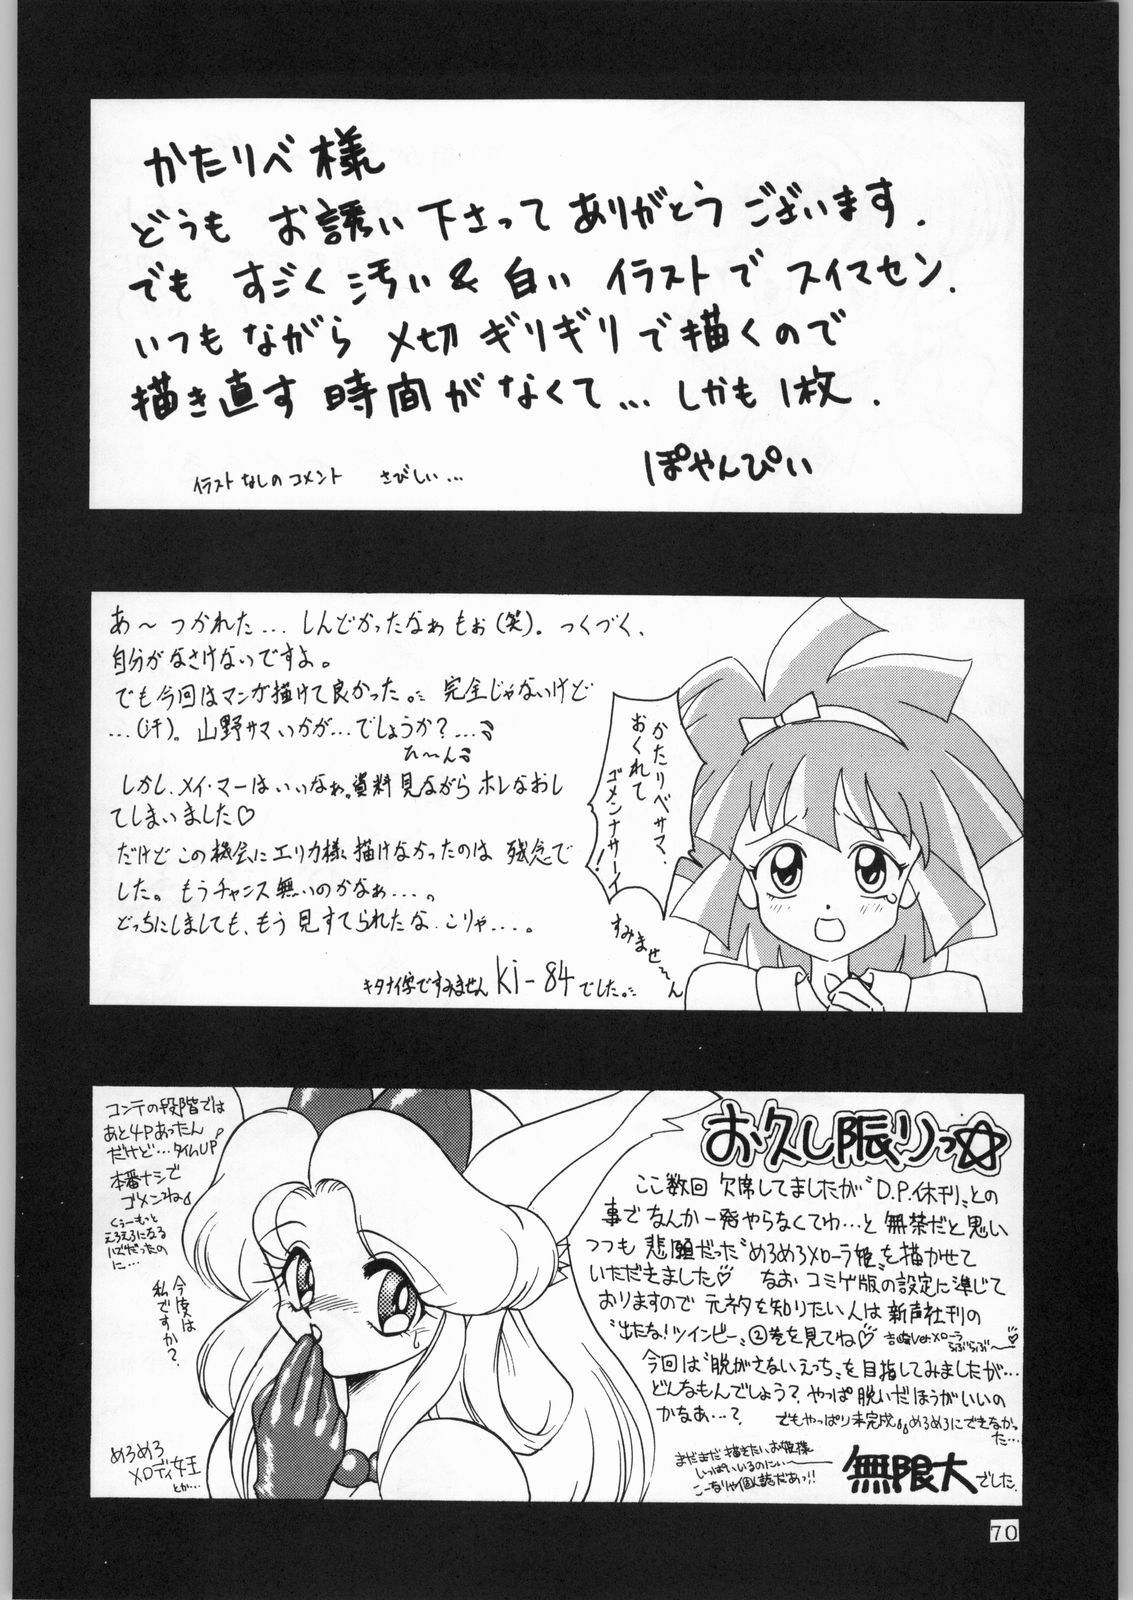 かたりべ様
どうも お誘い下さって ありがとう ございます.
でも すごく 汚い & 白い イラストで スイマセン.
いつもながら 〆切 ギリギリで描くので
描き直す 時間がなくて... しかも 1枚.
ぽやんぴぃ
イラストなしのコメント さびしい...
あ〜 つかれた... しんどかったなぁもぉ(笑)。つくづく、
自分がなさけないですよ。
でも今回はマンガ描けて良かった。完全じゃないけど
...(汗)。山野サマいかが...でしょうか?...
ひ〜ん
しかし、メイ・マーはいいなぁ。資料見ながら ホレなおし
てしまいました♡
だけど この機会に エリカ様 描けなかったのは 残念で
した。もうチャンス無いのかなぁ....。
どっちにしましても、もう 見すてられたな こりゃ....。
キタナイ字ですみません Ki-84でした。
かたりべサマ、
おくれて
ゴメンナサーイ!
すみませ〜ん
コンテの段階では
あと4Pあったん
だけど...タイムUP
本番ナシで
ゴメンね
くぅーもっと
えろえろになる
ハズだったの
に...
今度は
私ですか?
めろめろ
メロディ女王
とか...
お久し振りっ☆
ここ数回 欠席してましたが“D.P.休刊”との
事でなんか一発やらなくてわ...と 無茶だと思い
つつも 悲願だった“めろめろメローラ姫”を描かせて
いただきました♡ なお コミゲ版の設定に準じて
おりますので 元ネタを知りたい人は 新声社刊の
“出たな!ツインビー”②巻を見てね♡ 吉崎しぃのメローラ らぶらぶ〜♡
今回は“脱がさないえっち”を目指してみましたが...
どんなもんでしょう? やっぱ 脱いだほうがいいの
かなあ...? でもやっぱり未完成 めろめろにできなかっ
た...
まだまだ 描きたいお姫様
いっぱいいるのにぃ〜
こーなりゃ個人誌だあっ!!
無限大でした.
70